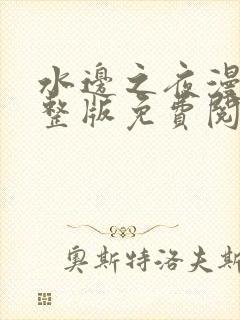 水邊之夜漫
整版免費閱
奧斯特洛夫斯